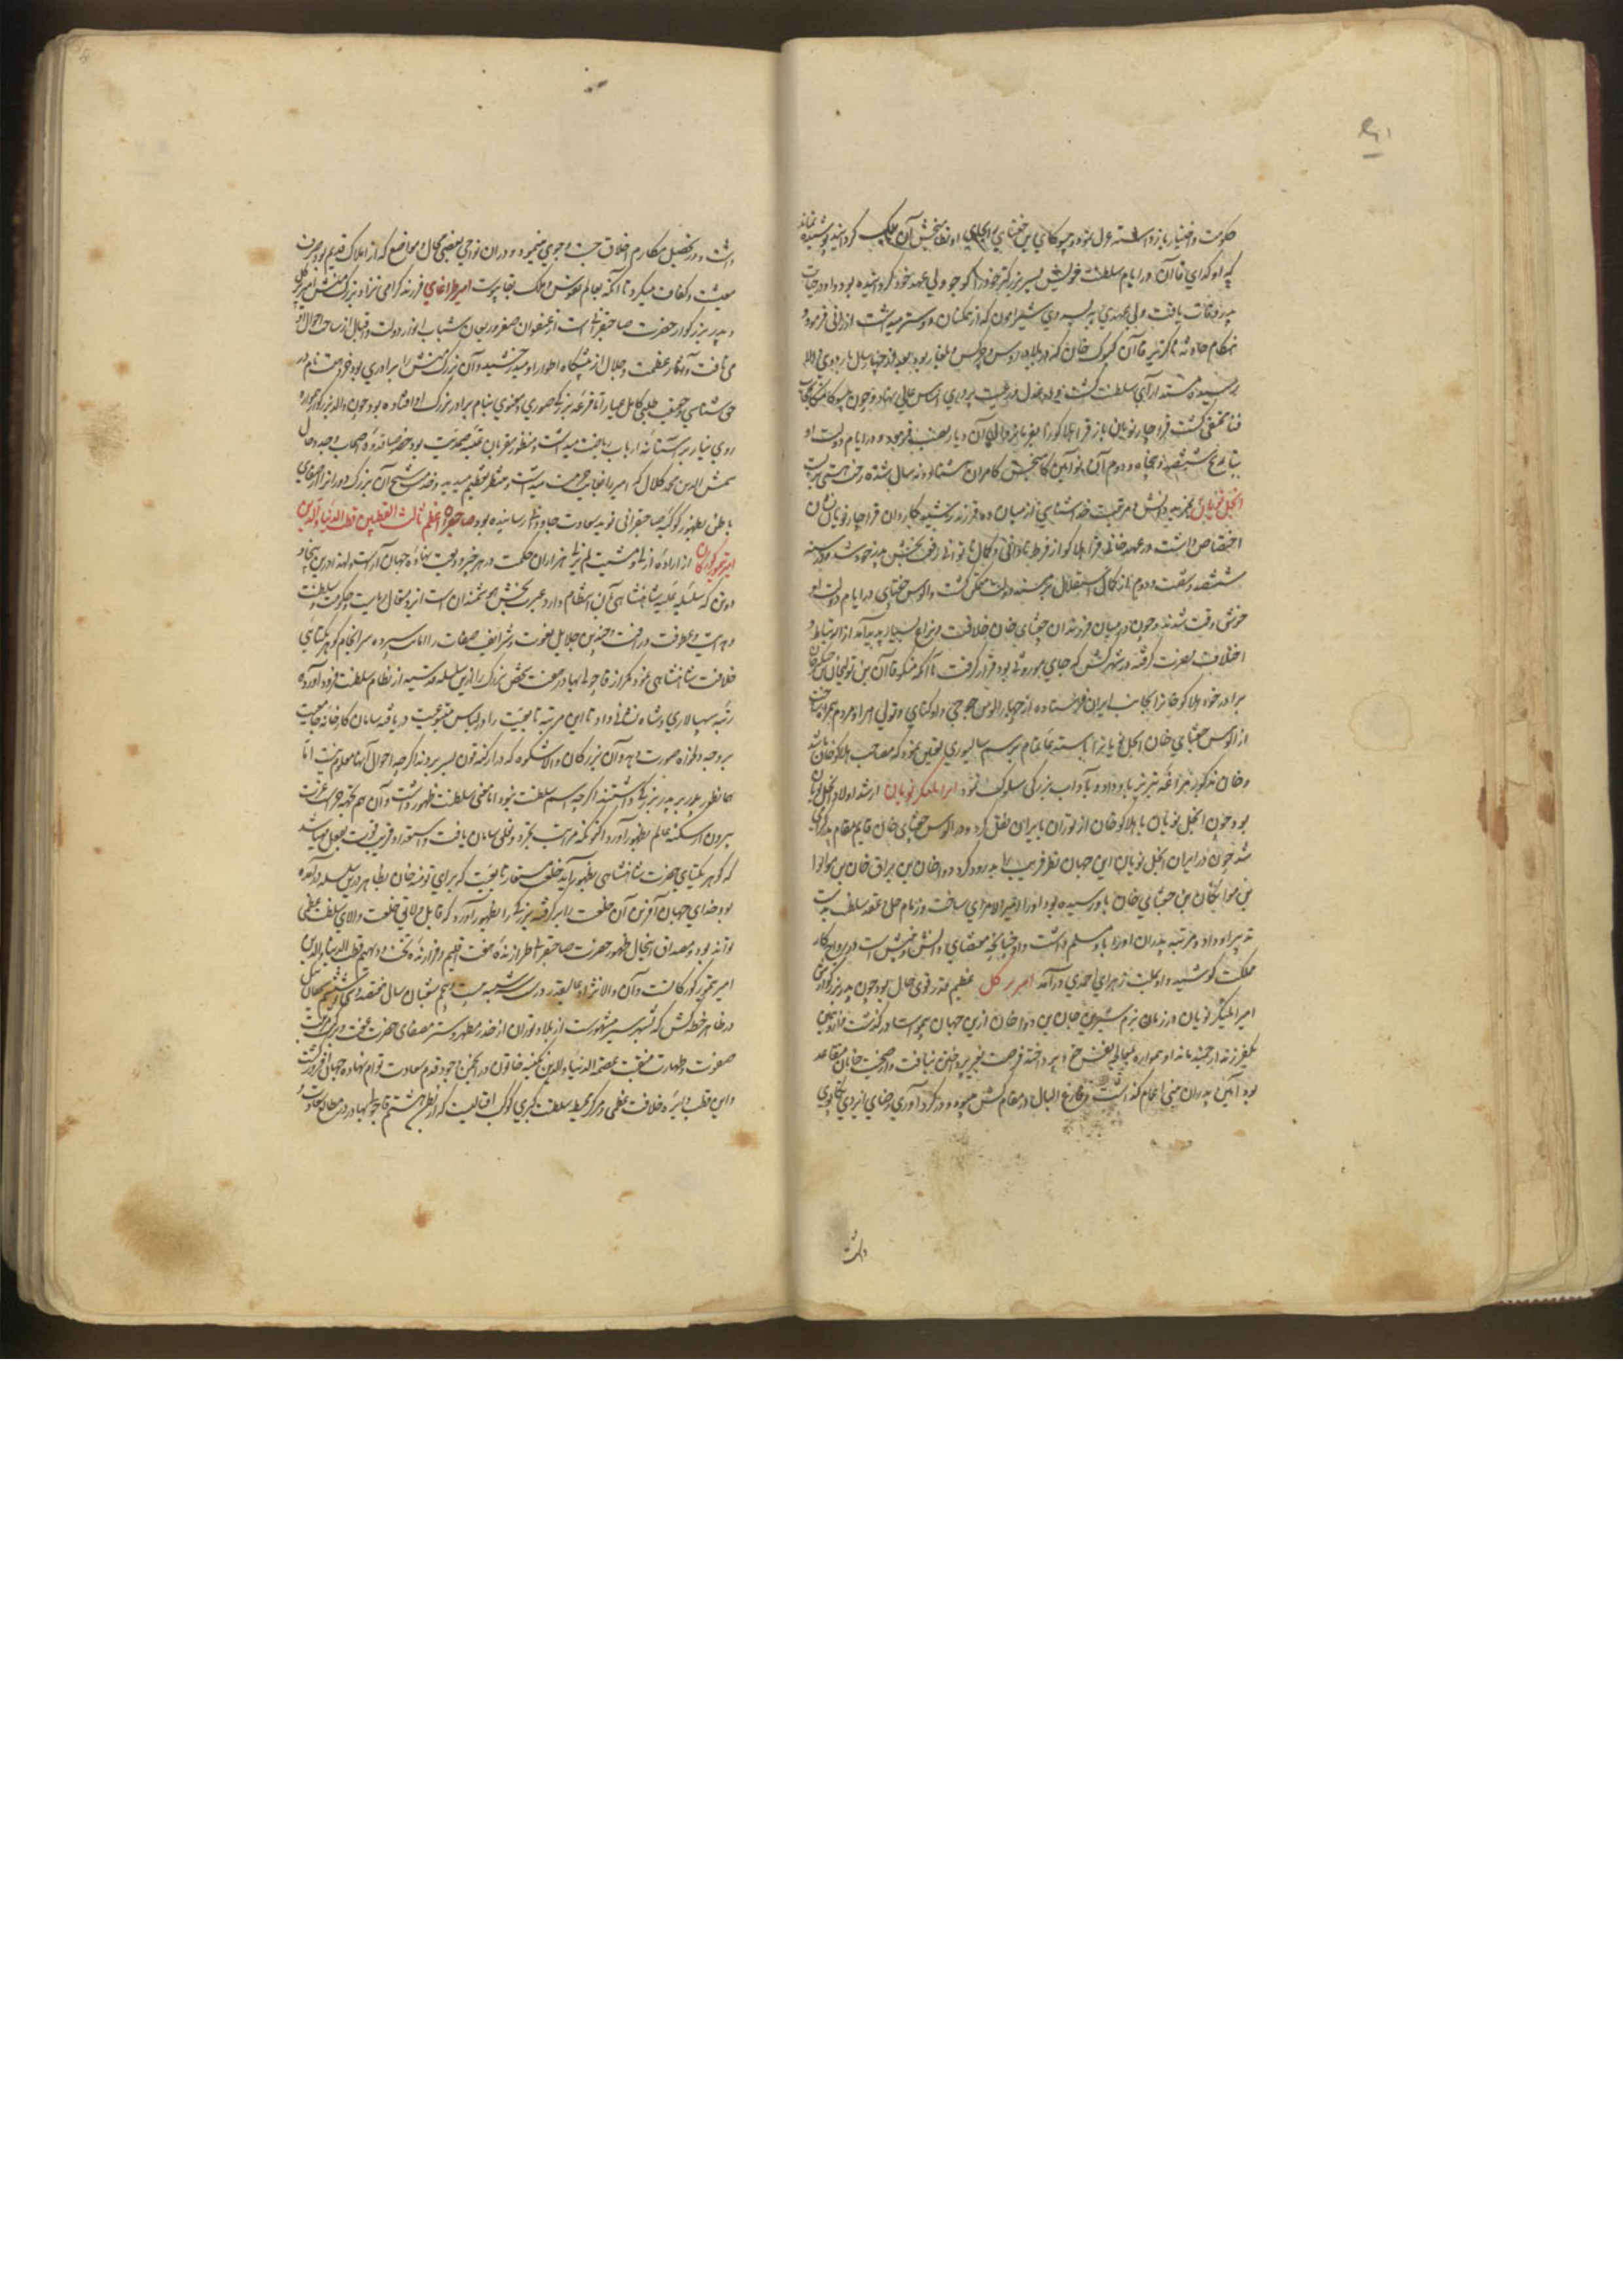 حکومت و اختیار بازداشته عزل نمود و ییسوکای بن چغتای را بجای او نظام بخش آن ملک گردانید و پوشیده نماند
که اوکدای قاآن در ایام سلطنت خویش پسر بزرگتر خود را کوجو ولی عهد خود گردانیده بود و او در حیات
پدر وفات یافت ولی عهدی به پسر وی شیرامون که از همگنان دوستر میداشت ارزانی فرمود و
هنگام حادثه ناگزیر قاآن کیوک خان که در بلاد روس و چرکس و بلغار بود بعد از چهار سال باردوی والا
رسیده مسند آرای سلطنت گشت و در عدل و رعیت پروری اساس عالی نهاد و چون ییسوکا منکا بحجاب
فنا مختفی گشت قراجار نویان باز قرا هلاکو را بفرمانروائی آن دیار نصب فرمود و در ایام دولت او
بتاریخ ششصد و پنجاه و دوم آن نوآیین کامبخش کامران هشتاد و نه سال شده رخت هستی بربست
ایجل نویان بمزید دانش و مرتبت خداشناسی از میان ده فرزند رشید کاردان قراجار نویان نشان
اختصاص داشت در عهد خانی قرا هلاکو از فرط دانائی و کمال توانائی رونق بخش پدر خود شد و در سنه
ششصد و شصت و دوم از کمال استقلال بر مسند دولت متمکن گشت و الوس چغتای در ایام دولت او
خوش وقت شدند و چون در میان فرزندان چغتای خان خلافت و نزاع بسیار پدید آمد از ارتباط و
اختلاف نفرت گرفته در شهر کش که جای موروثی بود قرار گرفت تا آنکه منکو قاآن بن تولیخان بن چنگیز خان
برادر خود هلاکو خان را بجانب ایران فرستاده از چهار الوس جوجی و اوکدای و تولی امرا و مردم همراه ساخت
از الوس چغتای خان ایجل نویان را بایستهٔ تمام برسم سالیوری تعین نمود که مصاحب هلاکو خان باشد
و خان مذکور مراغه تبریز باو داد و بآداب بزرگی سلوک نمود امیر ایلنکر نویان ارشد اولاد ایجل نویان
بود چون ایجل نویان با هلاکو خان از توران بایران نقل کرد و در الوس چغتای خان قایم مقام پدر گرامی
شد چون در ایران ایجل نویان این جهان نظر فریب را بدرود کرد دوا خان بن براق خان بن
بن مواتکان بن چغتای خان باو رسیده بود او را امیرالامرای ساخت و زمام حل و عقد سلطنت بدست
تدبیر او داد و مرتبه پدران او را باو مسلم داشت و او چنانچه مقتضای دانش و بینش است در رواج کار
مملکت کوشید و او بملت زهرای احمدی درآمد امیر برکل عظیم القدر قوی حال بود چون پدر بزرگوارش
امیر ایلنکر نویان در زمان ترم شیرین خان بن دوا خان ازین جهان بیوفا درگذشت از وی همین
یکفرزند ارجمند ماند او همواره بحال نفس خود پرداخته فرصت بغیر پرداختن نیافت و از صحبت خانان متقاعد
بود آیین پدران به بنی اعمام گذاشت و فارغ البال در مقام کش میبود و در گردآوری رضای ایزدی تکاپوی
داشت
داشت و در تحصیل مکارم اخلاق جست و جوی مینمود و در آن نواحی بعضی محال و مواضع که از املاک قدیم بود صرف
معیشت و کفاف میکرد تا آنکه بعالم نفوس و ملک بقا پیوست امیر طراغای فرزند گرامی نژاد بزرگ منش امیر برکل
و پدر بزرگوار حضرت صاحبقرانی است از عنفوان صغر و ریعان شباب انوار دولت و اقبال از ساحت احوال او
می تافت و آثار عظمت و جلال از پیشگاه اطوار او میدرخشید و آن بزرگ منش را برادری بود خردمند نام در
حق شناسی و حقیقت طلبی کامل عیار اما قرعه بزرگی صوری و معنوی بنام برادر بزرگ او افتاده بود چون والد بزرگوار همواره
روی نیاز بر آستانه ارباب ریاضت میداشت و منظور مقربان عتبه صمدیت بود خصوصا قدوهٔ اصحاب وجد و حال
شمس الدین محمد کلال که امیر را بغایت حرمت میداشت و منظر تعظیم میدید و قدسیه شیخ آن بزرگ دوران را از صفای
باطن بظهور کوکبه صاحبقرانی نوید سعادت جاوید رسانیده بود صاحبقران اعظم ثالث القطبین قطب الدنیا و الدین
امیر تیمور گورکان از ارادهٔ ازلی و مشیت لم یزلی هزاران حکمت در هر خیر ودیعت نهادهٔ جهان آراست لهذا درین پنجاه و
دوتن که سلسله علیه شاهنشاهی بآن انتظام دارد عبرت بخش هوشمندان است از ریاست و حکومت و سلطنت
و هدایت و عطوفت و رافت و چندین جلایل نعوت و شرایف صفات را امانت سپرده سرانجام گوهر یکتای
خلافت شاهنشاهی نمود مگر از قاچولی بهادر هفت شخص بزرگ را درین سلسله قدسیه از نظام سلطنت فرود آورده
رتبه سپهسالاری و شاه نشانی داد تا این مرتبه تابعیت را در لباس متبوعیت دریافته سامان کارخانه جامعیت
بروجه دلخواه صورت دهد و آن بزرگان والاشکوه که در ارکنه قون بسر بردند اگرچه احوال آنها معلوم نیست اما
کما نظور بطور پدر بزرگی داشتند اگرچه اسم سلطنت نبود اما معنی سلطنت ظهور داشت و آن هم بجهت عزت
بیرون از سکنه عالم بظهور آورد اکنون که مراتب تجرد و تعلق سامان یافت و استعداد قریب قوت بفعل مهیا شد
که گوهر یکتای حضرت شاهنشاهی بظهور آید خلعت مستعار تابعیت که برای تومنه خان بظاهر درین سلسله درآمده
بود خدای جهان آفرین آن خلعت را برگرفته بزرگی را بظهور آورد که قابل تلاقی خلعت والای سلطنت عظمی
تواند بود و مصداق اینحال ظهور حضرت صاحبقرانی طرازندهٔ هفت اقلیم و فرازندهٔ تخت و دیهیم قطب الدنیا و الدین
امیر تیمور گورکانست و آن والانژاد عالیقدر در شب سه شنبه بیست و پنجم شعبان سال هفتصد و سی و شش سچقان ئیل
در ظاهر خطه کش که بشهر سبز مشهورست از بلاد توران از خدر مطهر و ستر مصفای حضرت عفت و مرتبت
صفوت و طهارت منقبت عصمة الدنیا و الدین تکینه خاتون در انجمن وجود قدم سعادت توام نهاده جهان افروز گشت
و این قطب دایره خلافت عظمی و مرکز محیط سلطنت کبری کوکب اقبالیست که از بطن هشتم قاجولی بهادر در مطالع سعادت